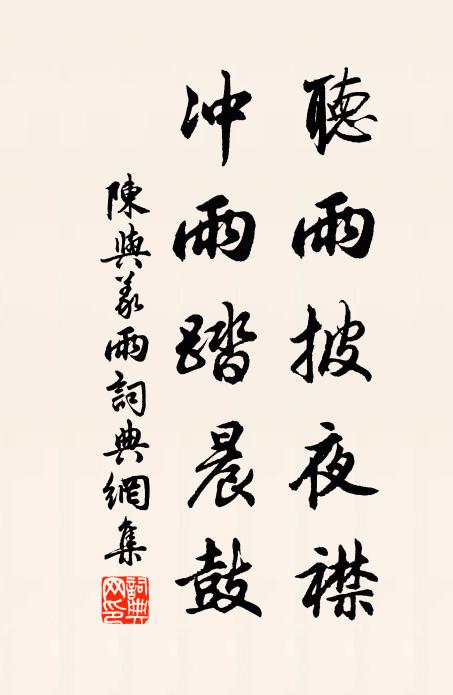 聽雨披夜襟
冲雨踏晨鼓
陳與義雨詞典網集
詞典網印